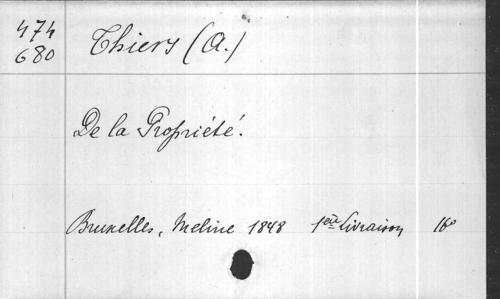 474
680
Thiers (A.)
De la Propriété.
Bruxelles, Meline 1848 1ère Livraison 16°